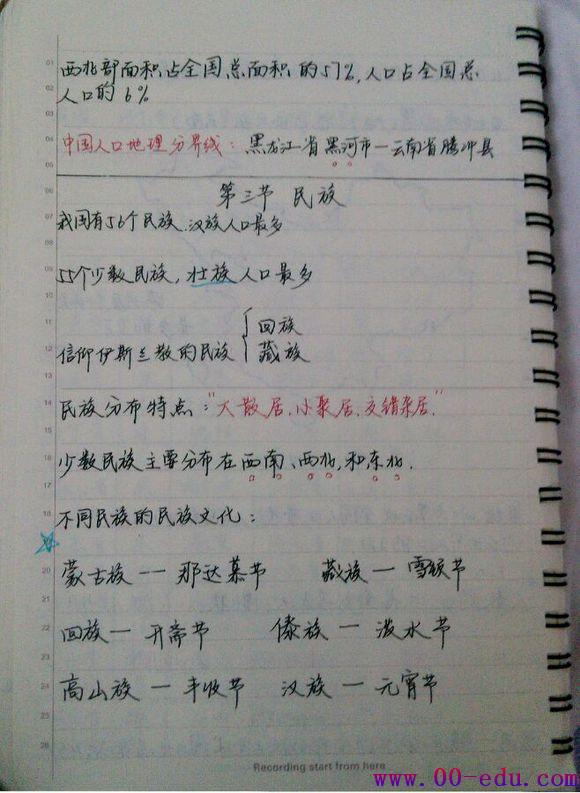 西北部面积占全国总面积的57%,人口占全国总
人口的6%
中国人口地理分界线：黑龙江省黑河市—云南省腾冲县
第三节 民族
我国有56个民族.汉族人口最多
55个少数民族,壮族人口最多
回族
信仰伊斯兰教的民族
藏族
民族分布特点："大散居、小聚居、交错杂居".
少数民族主要分布在西南、西北,和东北.
不同民族的民族文化：
蒙古族 — 那达慕节 藏族 — 雪顿节
回族 — 开斋节 傣族 — 泼水节
高山族 — 丰收节 汉族 — 元宵节
Recording start from here
www.00-edu.com